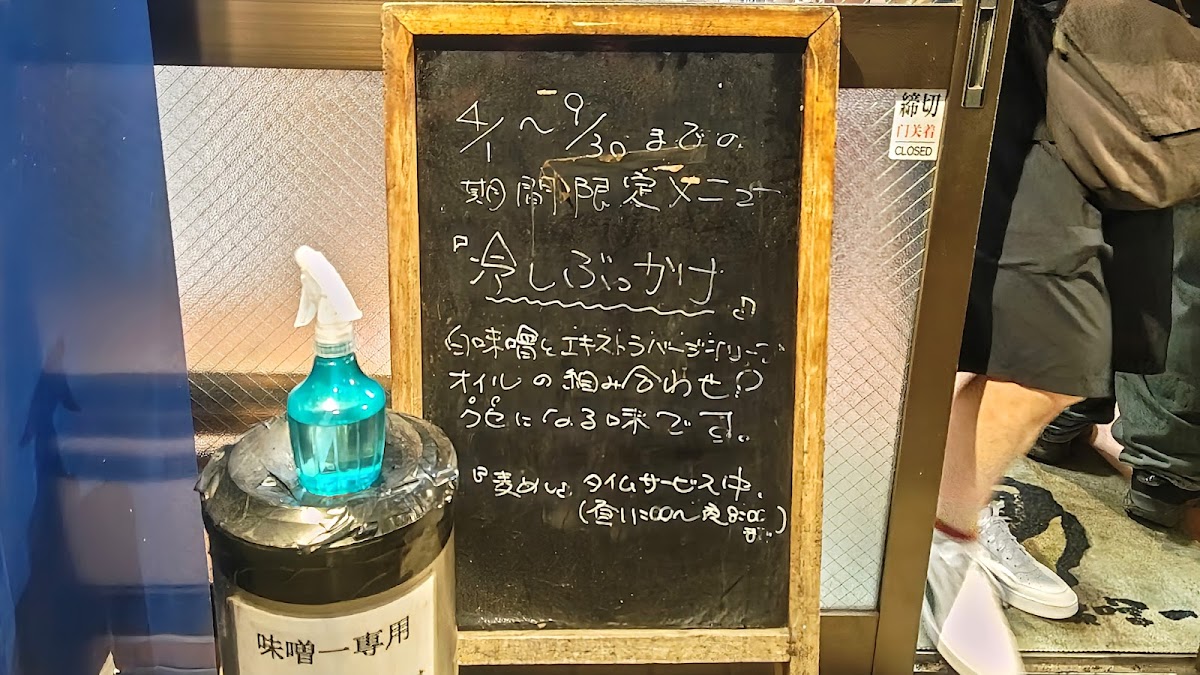 4/1〜9/30までの
期間限定メニュー
『冷しぶっかけ
白味噌とエキストラバージンオリーブ
オイルの組み合わせ♡
になる味です。
『麦めし』タイムサービス中。
(昼11:00〜夜8:00
まで)
締切
CLOSED
味噌一専用